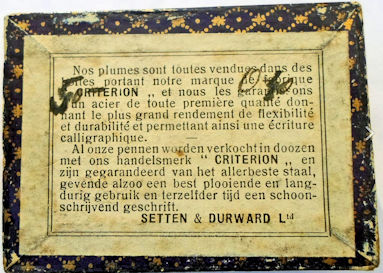 Nos plumes sont toutes vendues dans des
boîtes portant notre marque de fabrique
" CRITERION „ et nous les garantissons
d'un acier de toute première qualité don-
nant le plus grand rendement de flexibilité
et durabilité et permettant ainsi une écriture
calligraphique.
Al onze pennen worden verkocht in doozen
met ons handelsmerk " CRITERION „ en
zijn gegarandeerd van het allerbeste staal,
gevende alzoo een best plooiende en lang-
durig gebruik en terzelfder tijd een schoon-
schrijvend geschrift.
SETTEN & DURWARD Ltd